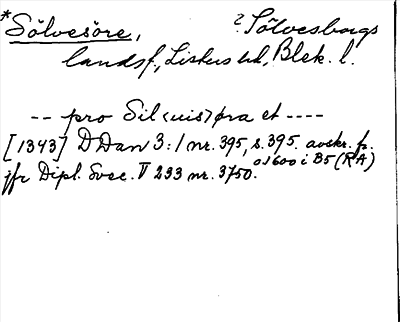 *Sölvesöre, ? Sölvesborgs
landsf., Listers hd, Blek. l.
-- pro Sil<uis>øra et ----
[1343] DDan 3:1 nr. 395, s. 395. avskr. fr.
o 1600 i B5 (RA)
jfr Dipl. Svec. V 233 nr. 3750.